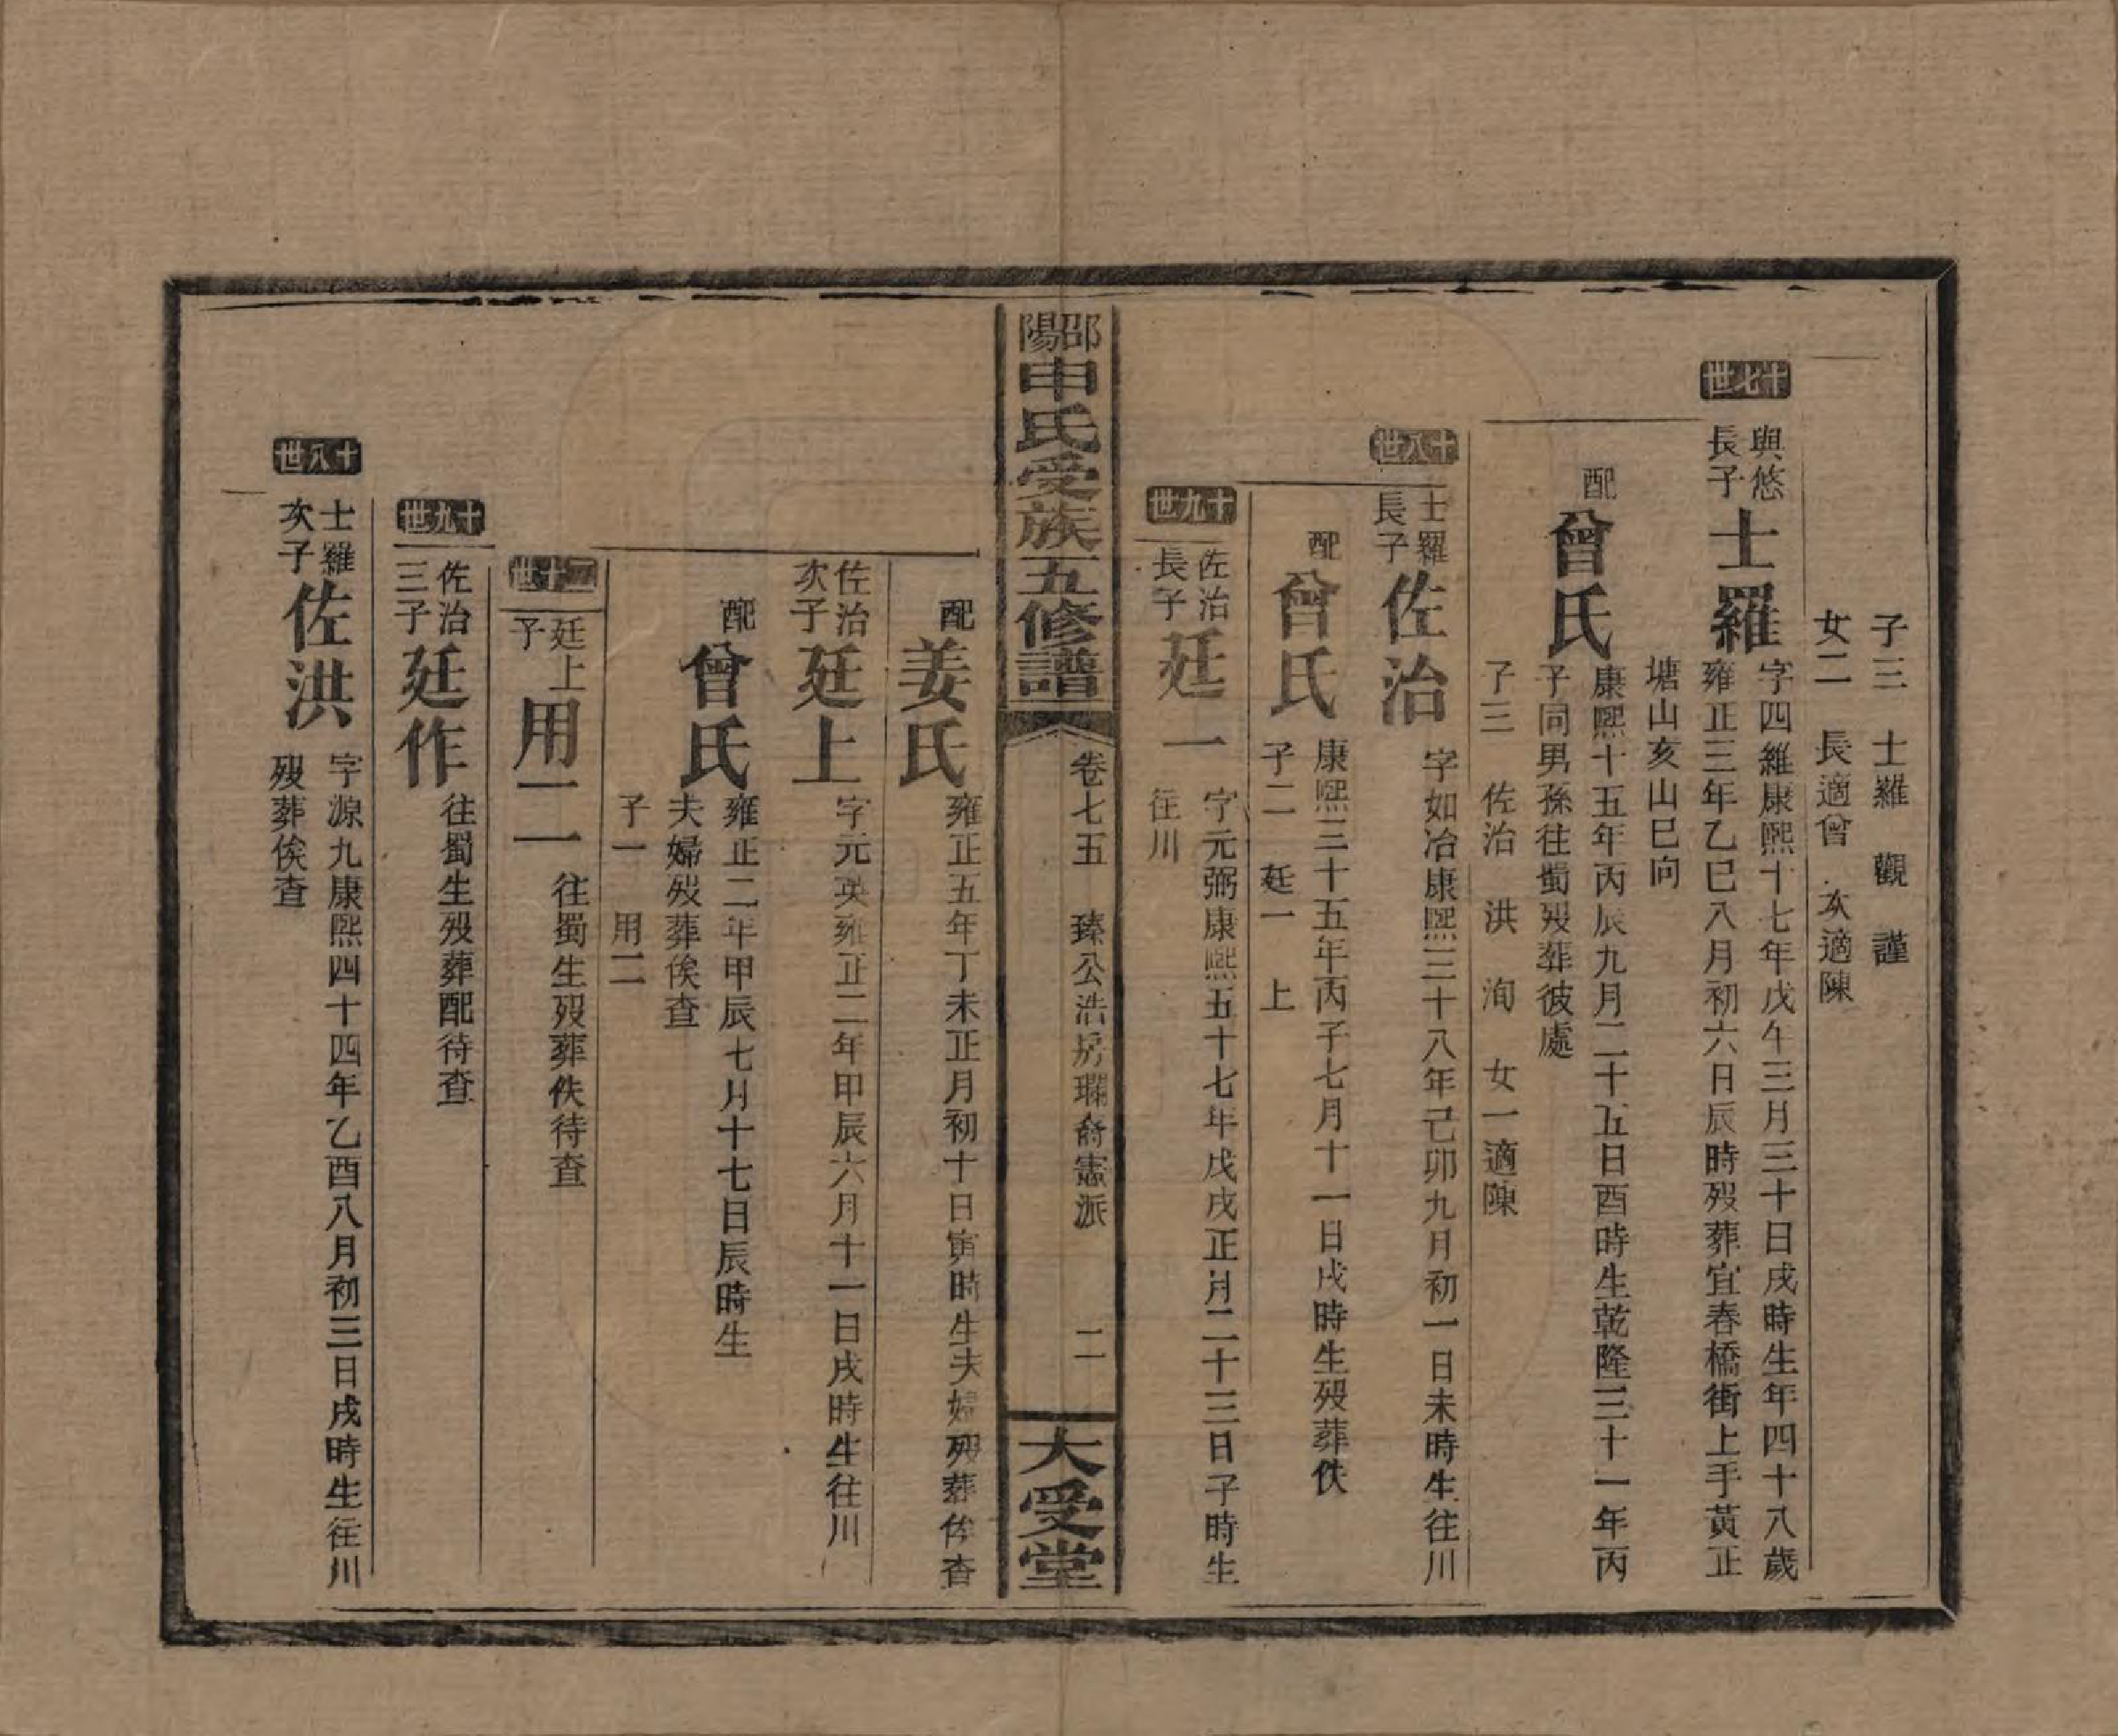 子三　士羅　觀　謹
女二　長適曾　次適陳
十七世
與悠
長子
士羅
字四維康熙十七年戊午三月三十日戌時生年四十八歲
雍正三年乙巳八月初六日辰時歿葬宜春橋街上手黃正
塘山亥山巳向
配
曾氏
康熙十五年丙辰九月二十五日酉時生乾隆三十一年丙
子同男孫往蜀歿葬彼處
子三　佐治　洪　洵　女一適陳
十八世
士羅
長子
佐治
字如冶康熙三十八年己卯九月初一日未時生往川
配
曾氏
康熙三十五年丙子七月十一日戌時生歿葬佚
子二　廷一　上
十九世
佐治
長子
廷一
字元弼康熙五十七年戊戌正月二十三日子時生
往川
邵陽申氏受族五修譜
卷七五　臻公浩房瓓裔憲派　二
大受堂
配
姜氏
雍正五年丁未正月初十日寅時生夫婦歿葬俟查
佐治
次子
廷上
字元英雍正二年甲辰六月十一日戌時生往川
配
曾氏
雍正二年甲辰七月十七日辰時生
夫婦歿葬俟查
子一　用二
二十世
廷上
子
用二
往蜀生歿葬佚待查
十九世
佐治
三子
廷作
往蜀生歿葬配待查
十八世
士羅
次子
佐洪
字源九康熙四十四年乙酉八月初三日戌時生往川
歿葬俟查